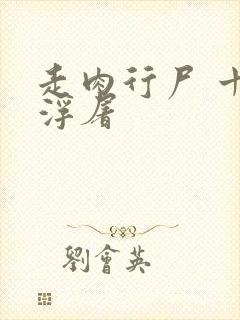 走肉行尸 十
浮屠
劉會英